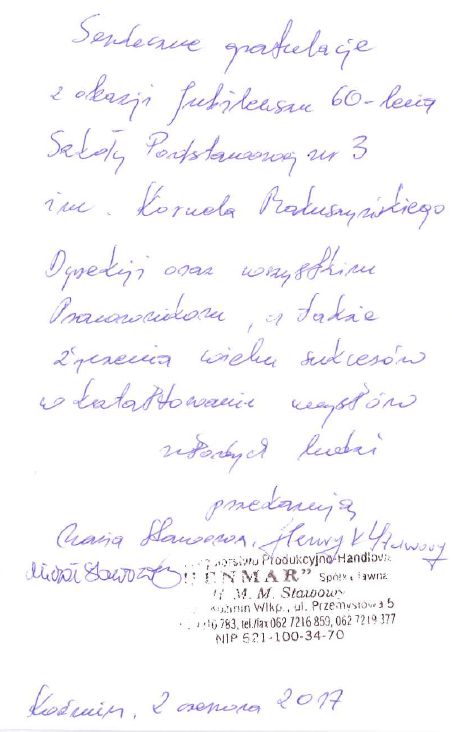 Serdeczne gratulacje
z okazji Jubileuszu 60-lecia
Szkoły Podstawowej nr 3
im. Kornela Makuszyńskiego
Dyrekcji oraz wszystkim
Pracownikom, a także
życzenia wielu sukcesów
w kształtowaniu umysłów
młodych ludzi
przekazują
Maria Stawowa, Henryk Stawowy
Michał Stawowy
Produkcyjno-Handlowe
"HENMAR" Spółka Jawna
H. M. M. Stawowy
Koźmin Wlkp., ul. Przemysłowa 5
tel./fax 062 7216 859, 062 7219 377
NIP 621-100-34-70
Koźmin, 2 czerwca 2017